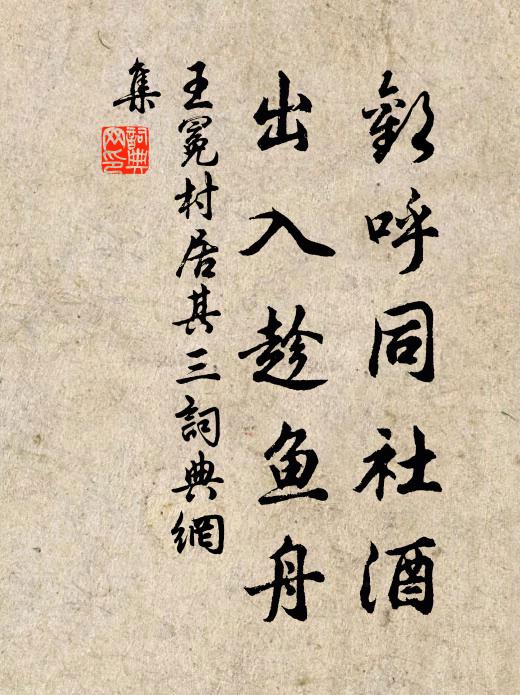 歡呼同社酒
出入趁鱼舟
王冕村居其三詞典網
集
詞典
网印